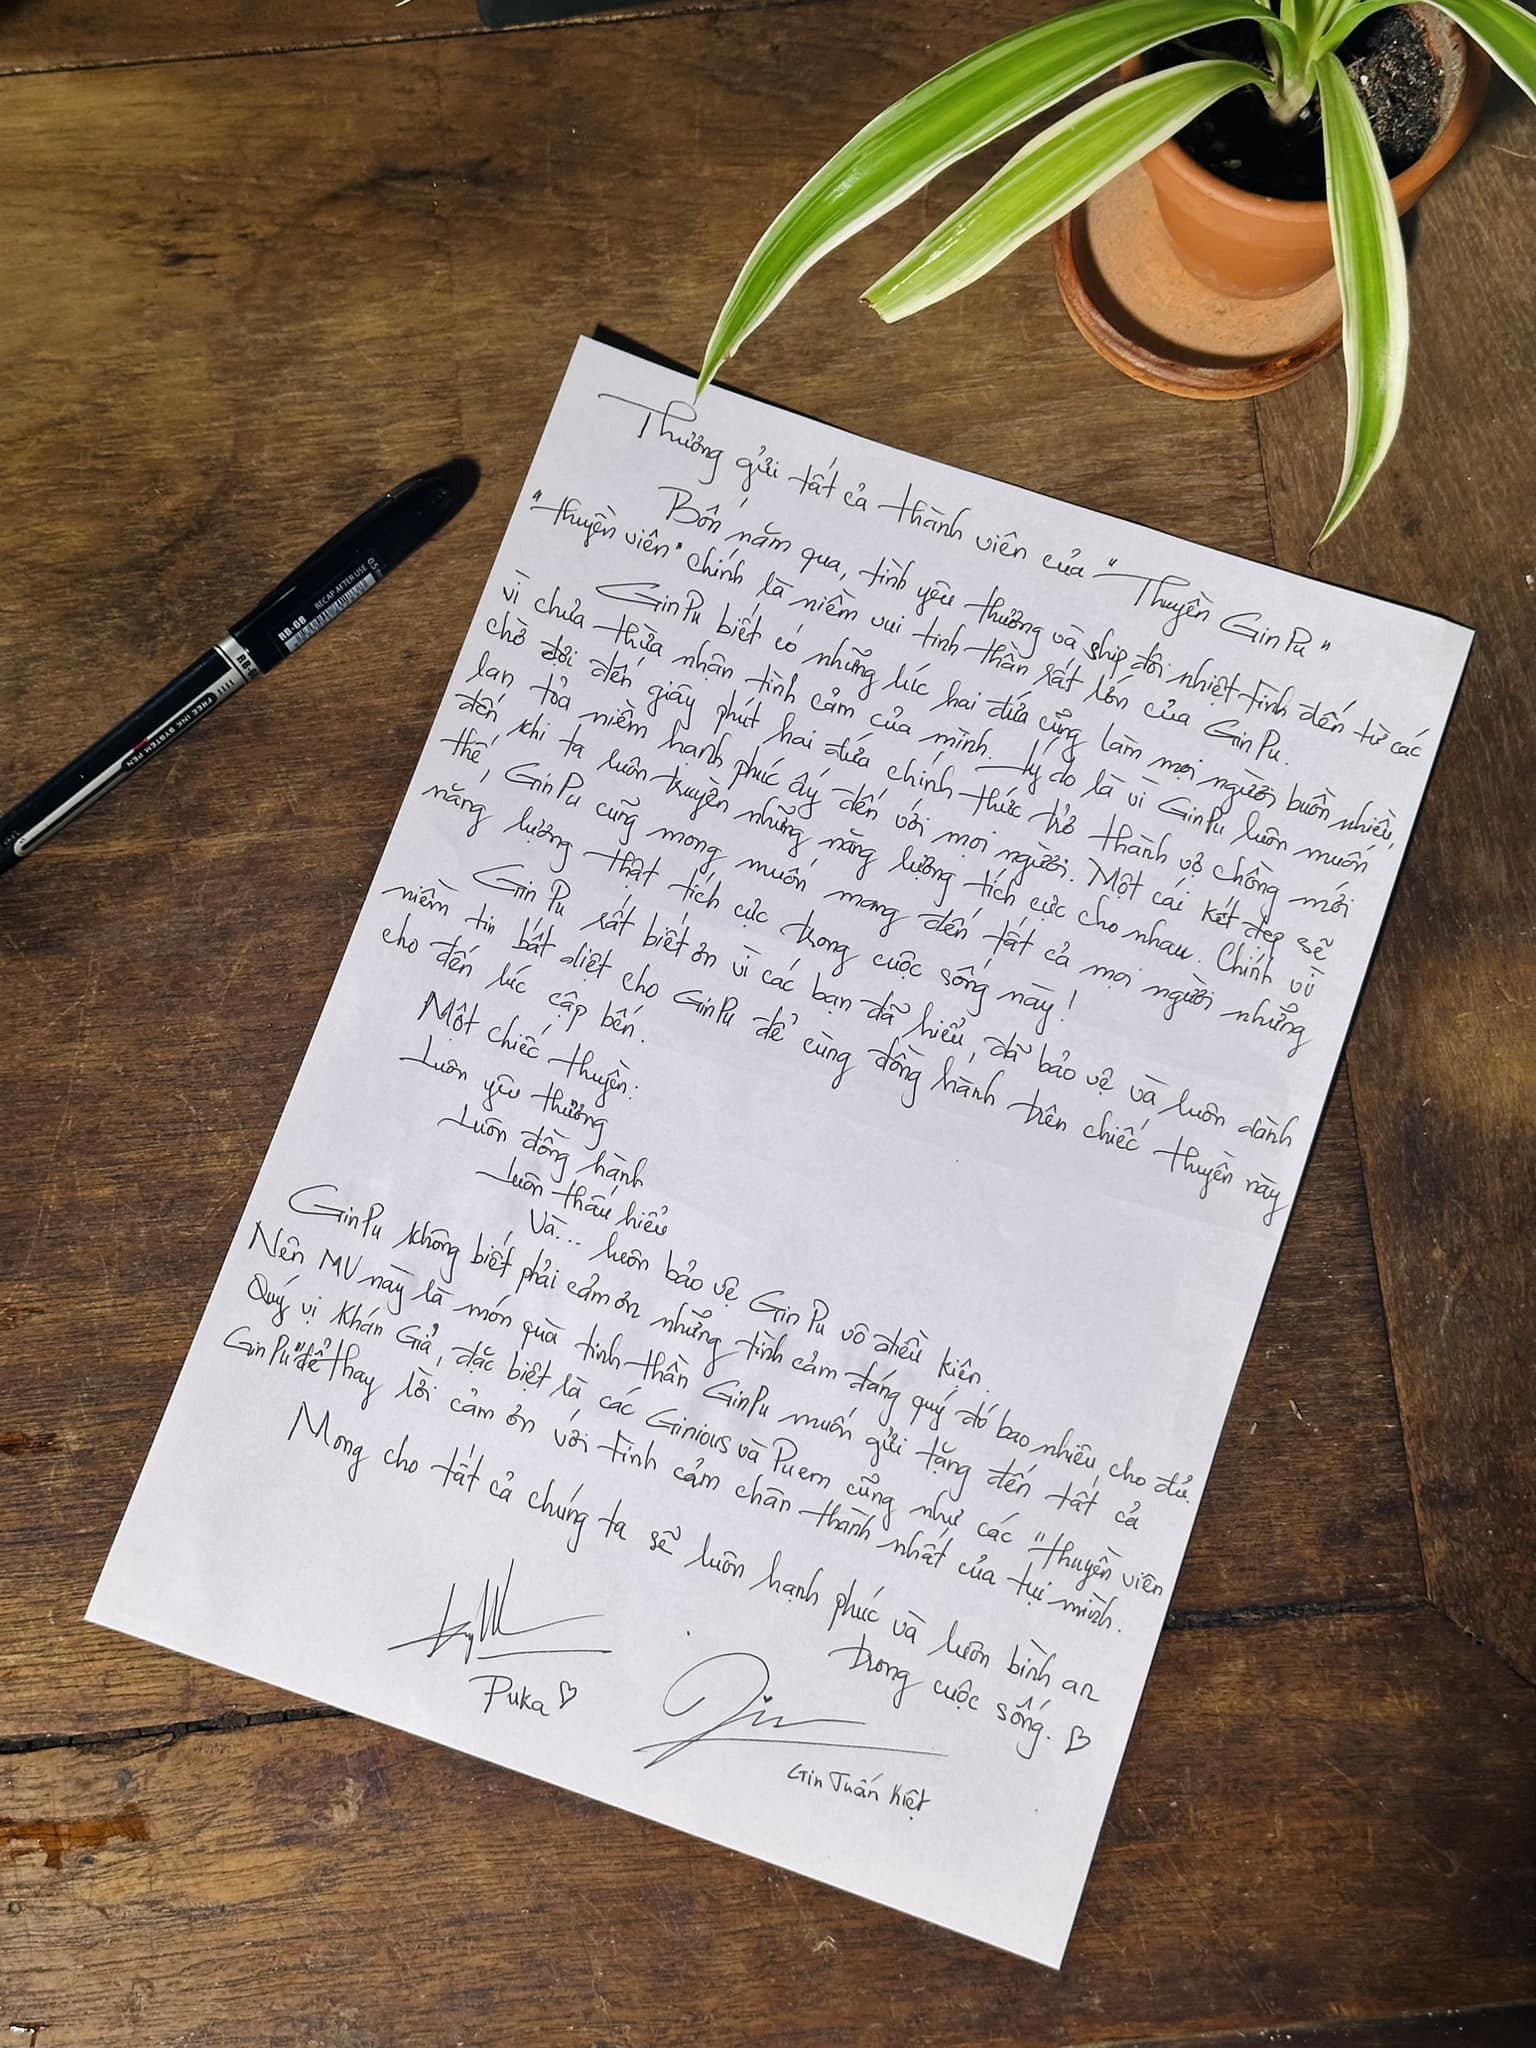 Thương gửi tất cả thành viên của "Thuyền GinPu"
Bốn năm qua, tình yêu thương và ship đôi nhiệt tình đến từ các
"thuyền viên" chính là niềm vui tinh thần rất lớn của GinPu.
GinPu biết có những lúc hai đứa cũng làm mọi người buồn nhiều,
vì chưa thừa nhận tình cảm của mình. Lý do là vì GinPu luôn muốn
chờ đợi đến giây phút hai đứa chính thức trở thành vợ chồng mới
lan tỏa niềm hạnh phúc ấy đến với mọi người. Một cái kết đẹp sẽ
đến khi ta luôn truyền những năng lượng tích cực cho nhau. Chính vì
thế, GinPu cũng mong muốn mang đến tất cả mọi người những
năng lượng thật tích cực trong cuộc sống này!
GinPu rất biết ơn vì các bạn đã hiểu, đã bảo vệ và luôn dành
niềm tin bất diệt cho GinPu để cùng đồng hành trên chiếc thuyền này
cho đến lúc cập bến.
Một chiếc thuyền:
Luôn yêu thương
Luôn đồng hành
Luôn thấu hiểu
Và... luôn bảo vệ GinPu vô điều kiện.
GinPu không biết phải cảm ơn những tình cảm đáng quý đó bao nhiêu cho đủ.
Nên MV này là món quà tinh thần GinPu muốn gửi tặng đến tất cả
Quý vị Khán Giả, đặc biệt là các Ginious và Puem cũng như các "thuyền viên
GinPu" để thay lời cảm ơn với tình cảm chân thành nhất của tụi mình.
Mong cho tất cả chúng ta sẽ luôn hạnh phúc và luôn bình an
trong cuộc sống. ♡
Puka ♡
Gin Tuấn Kiệt
RECAP AFTER USE 05
RB-68
FREE INK SYSTEM PEN